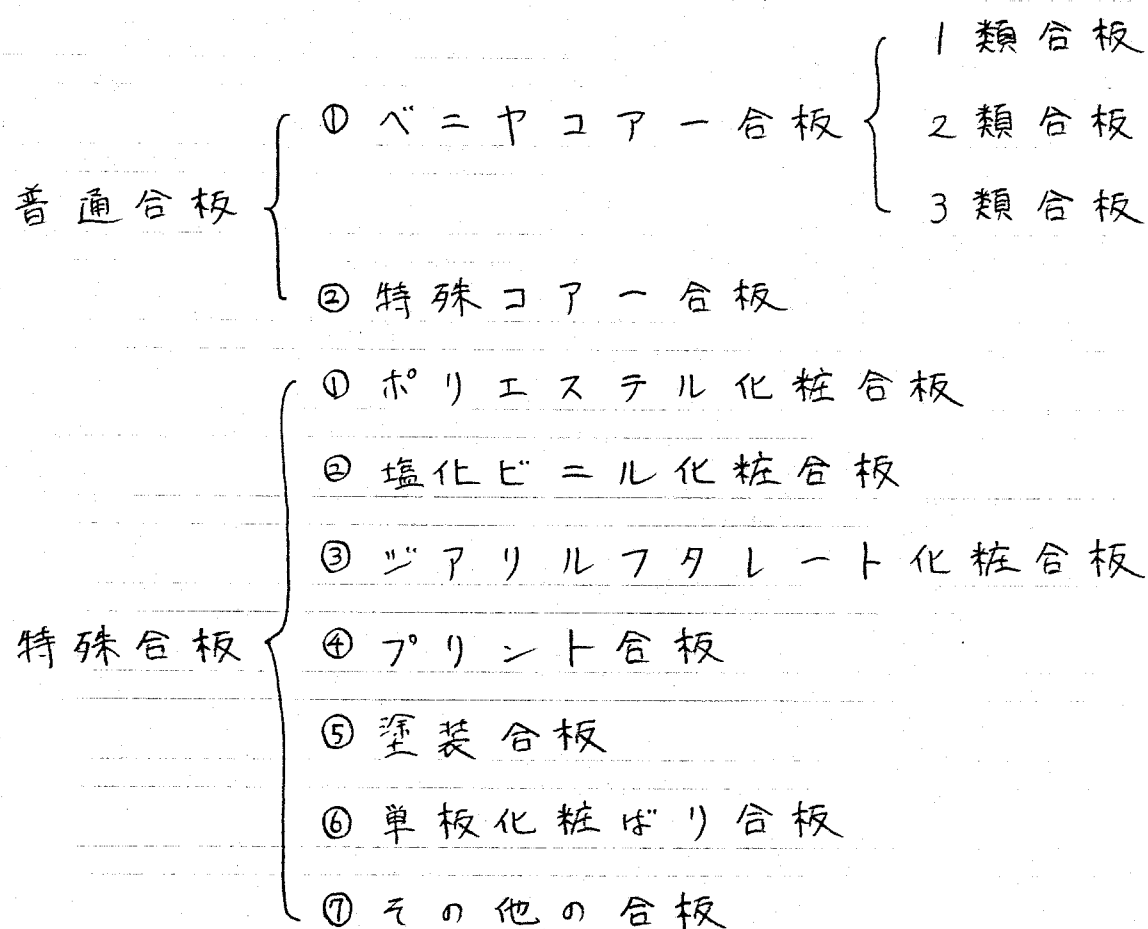 普通合板
① ベニヤコアー合板
1類合板
2類合板
3類合板
② 特殊コアー合板
特殊合板
① ポリエステル化粧合板
② 塩化ビニル化粧合板
③ ジアリルフタレート化粧合板
④ プリント合板
⑤ 塗装合板
⑥ 単板化粧ばり合板
⑦ その他の合板